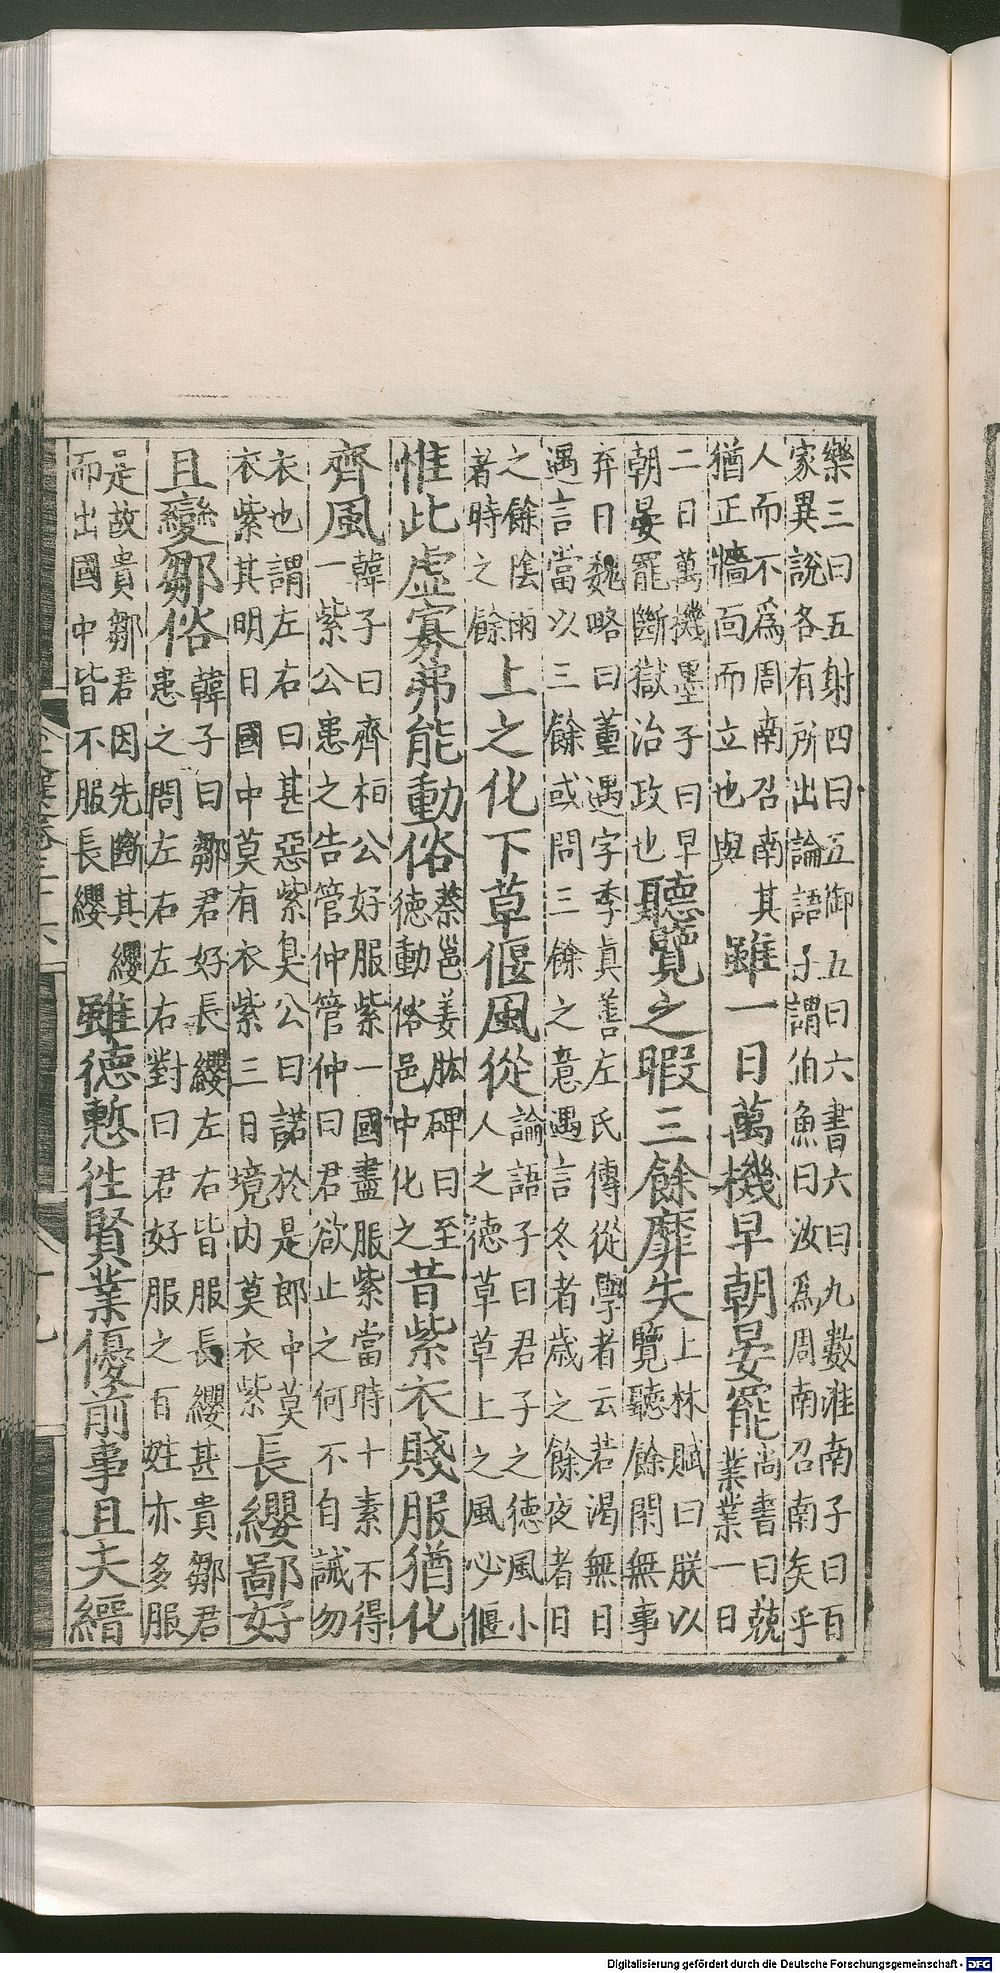 樂三曰五射四曰五御五曰六書六曰九數淮南子曰百
家異說各有所出論語子謂伯魚曰汝爲周南召南矣乎
人而不爲周南召南其
猶正牆面而立也與
雖一日萬機早朝晏罷
尚書曰兢
業業一日
二日萬機墨子曰早
朝晏罷斷獄治政也
聽覽之暇三餘靡失
上林賦曰朕以
覽聽餘閑無事
弃日魏略曰董遇字季眞善左氏傳從學者云若渴無日
遇言當以三餘或問三餘之意遇言冬者歲之餘夜者日
之餘陰雨
者時之餘
上之化下草偃風從
論語子曰君子之德風小
人之德草草上之風必偃
惟此虛寡弗能動俗
蔡邕姜肱碑曰至
德動俗邑中化之
昔紫衣賤服猶化
齊風
韓子曰齊桓公好服紫一國盡服紫當時十素不得
一紫公患之告管仲管仲曰君欲止之何不自誡勿
衣也謂左右曰甚惡紫臭公曰諾於是郎中莫
衣紫其明日國中莫有衣紫三日境內莫衣紫
長纓鄙好
且變鄒俗
韓子曰鄒君好長纓左右皆服長纓甚貴鄒君
患之問左右左右對曰君好服之百姓亦多服
是故貴鄒君因先斷其纓
而出國中皆不服長纓
雖德慙往賢業優前事且夫縉
Digitalisierung gefördert durch die Deutsche Forschungsgemeinschaft - DFG